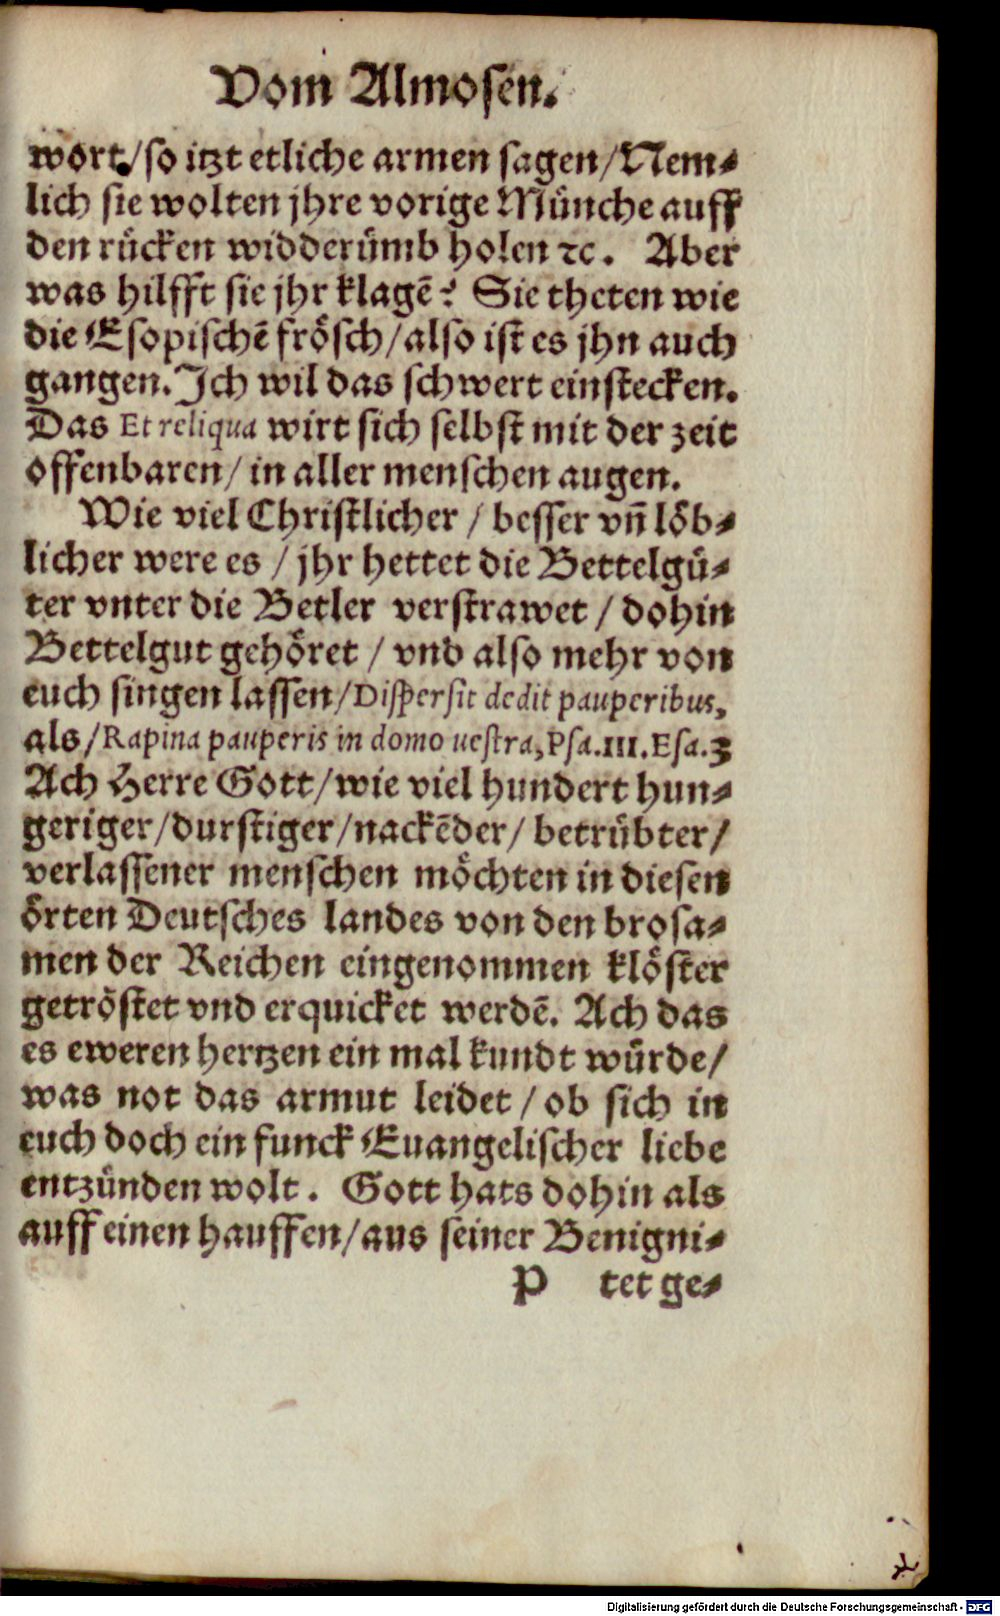 Vom Almosen.
wort / so itzt etliche armen sagen / Nem⸗
lich sie wolten jhre vorige Münche auff
den rücken widderümb holen ꝛc. Aber
was hilfft sie jhr klagẽ? Sie theten wie
die Esopischẽ frösch / also ist es jhn auch
gangen. Ich wil das schwert einstecken.
Das Et reliqua wirt sich selbst mit der zeit
offenbaren / in aller menschen augen.
Wie viel Christlicher / besser vñ löb⸗
licher were es / jhr hettet die Bettelgü⸗
ter vnter die Betler verstrawet / dohin
Bettelgut gehöret / vnd also mehr von
euch singen lassen / Dispersit dedit pauperibus,
als / Rapina pauperis in domo uestra, Psa. 111. Esa. 3
Ach Herre Gott / wie viel hundert hun⸗
geriger / durstiger / nackẽder / betrübter /
verlassener menschen möchten in diesen
örten Deutsches landes von den brosa⸗
men der Reichen eingenommen klöster
getröstet vnd erquicket werdẽ. Ach das
es eweren hertzen ein mal kundt würde /
was not das armut leidet / ob sich in
euch doch ein funck Euangelischer liebe
entzünden wolt. Gott hats dohin als
auff einen hauffen / aus seiner Benigni⸗
P tet ge⸗
Digitalisierung gefördert durch die Deutsche Forschungsgemeinschaft - DFG